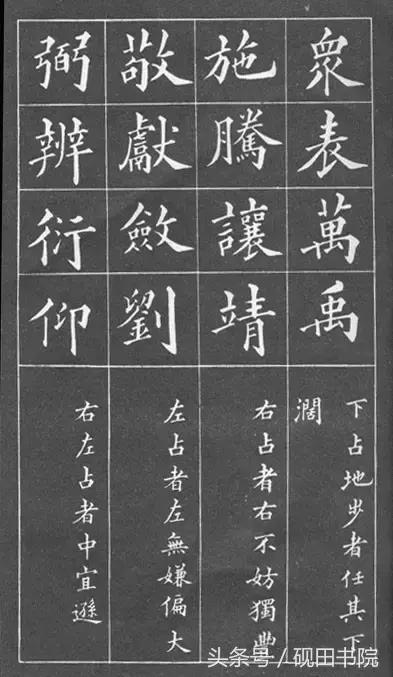 眾表萬禹
下占地步者任其下
濶
施騰讓靖
右占者右不妨獨豊
敬獻斂劉
左占者左無嫌偏大
弼辨衍仰
右左占者中宜遜
头条号/砚田书院